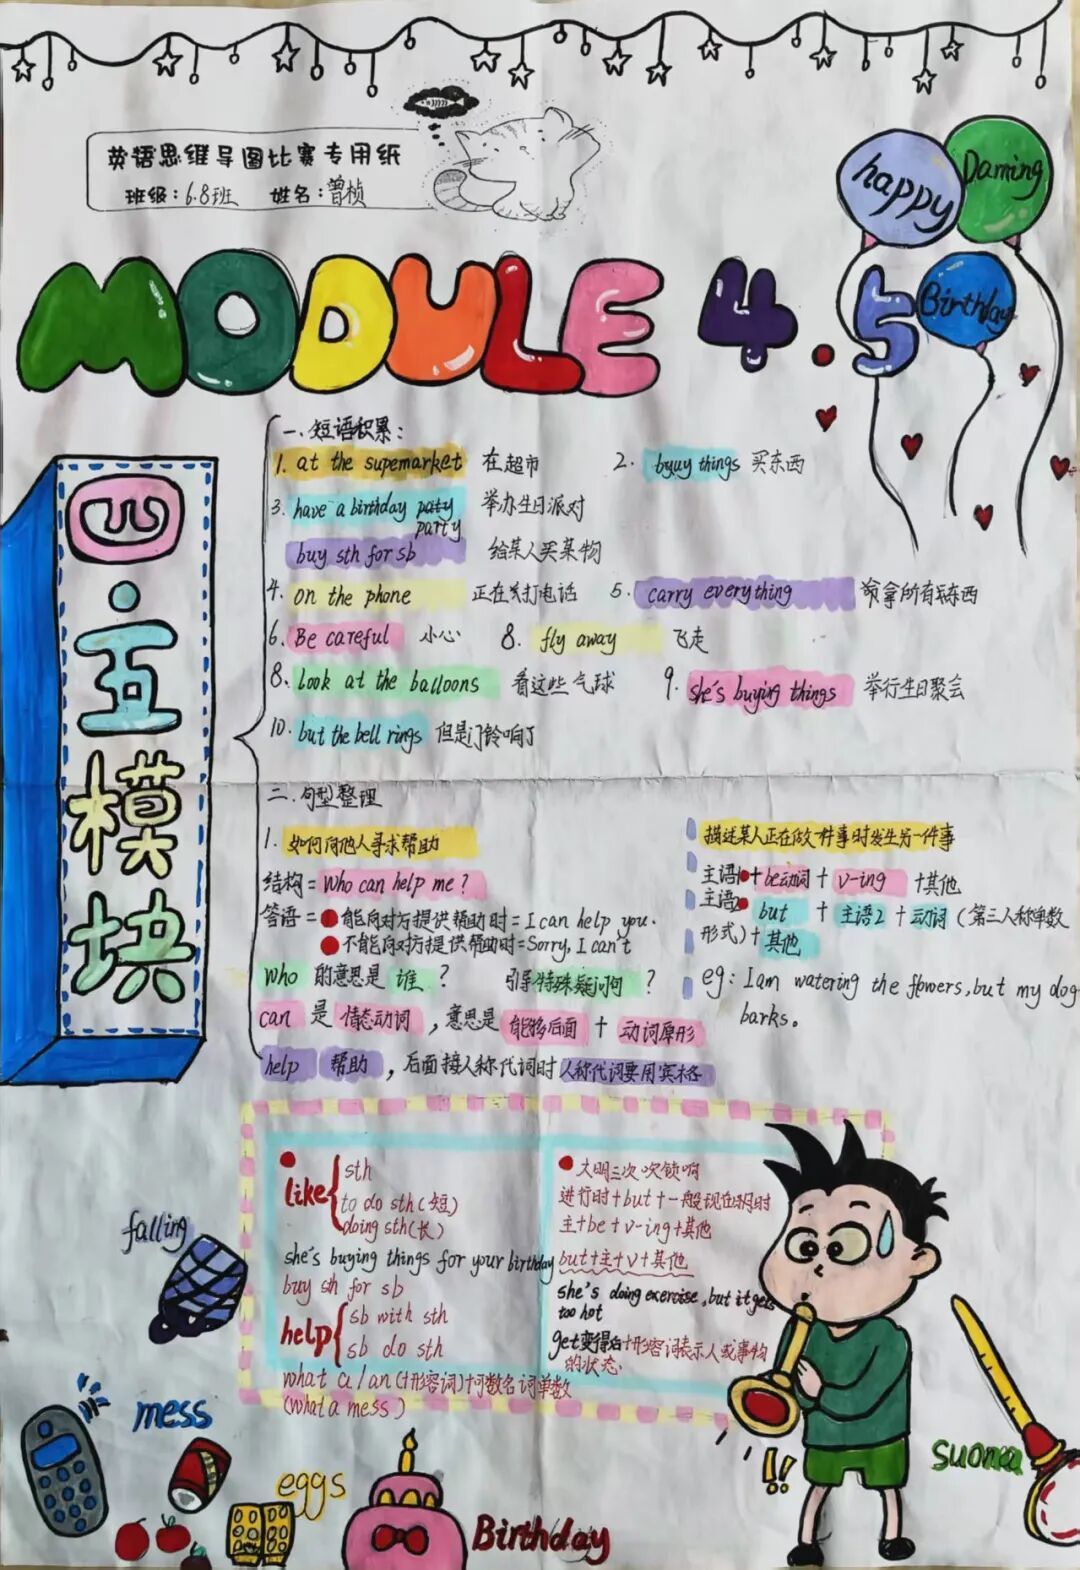 英语思维导图比赛专用纸
班级：6.8班 姓名：曾桢
happy
Daming
Birthday
MODULE 4.5
四·五模块
一.短语积累：
1. at the supemarket 在超市
2. byuy things 买东西
3. have a birthday paty 举办生日派对
party
buy sth for sb 给某人买某物
4. on the phone 正在打电话
5. carry everything 拿所有东西
6. Be careful 小心
8. fly away 飞走
8. look at the balloons 看这些气球
9. she's buying things 举行生日聚会
10. but the bell rings 但是门铃响了
二.句型整理
1. 如何向他人寻求帮助
结构=Who can help me?
答语=能向对方提供帮助时=I can help you.
不能向对方提供帮助时=Sorry, I can't
who 的意思是 谁 ? 引导特殊疑问句 ?
can 是 情态动词 ，意思是 能够后面 + 动词原形
help 帮助 ，后面接人称代词时人称代词要用宾格
描述某人正在做一件事时发生另一件事
主语1+be动词+v-ing+其他
主语2 but + 主语2 + 动词（第三人称单数
形式）+其他
eg: I am watering the flowers, but my dog
barks.
like sth
to do sth (短)
doing sth (长)
she's buying things for your birthday
buy sh for sb
help sb with sth
sb do sth
what a/an (+形容词)+可数名词单数
(what a mess)
大明三次吹锁呐
进行时+but+一般现在时
主+be+v-ing+其他
but+主+v+其他
she's doing exercise, but it gets
too hot
get变得后+形容词表示人或事物
的状态.
falling
mess
eggs
Birthday
!!
suona